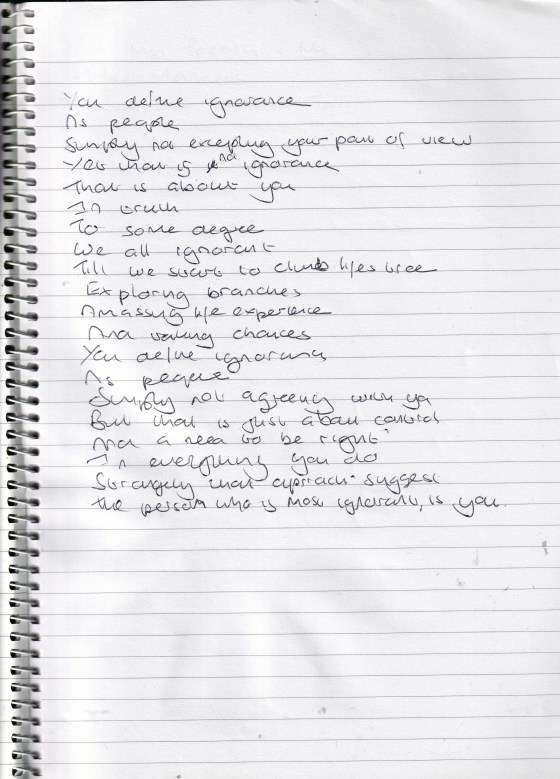 You define ignorance
As people
Simply not excepting your point of view
Yet that is not ignorance
That is about you
In truth
To some degree
We all ignorant
Till we start to climb lifes tree
Exploring branches
Amassing life experience
And taking chances
You define ignorance
As people
Simply not agreeing with ya
But that is just about control
And a need to be right
In everything you do
Strangely that approach suggest
the person who is most ignorant, is you